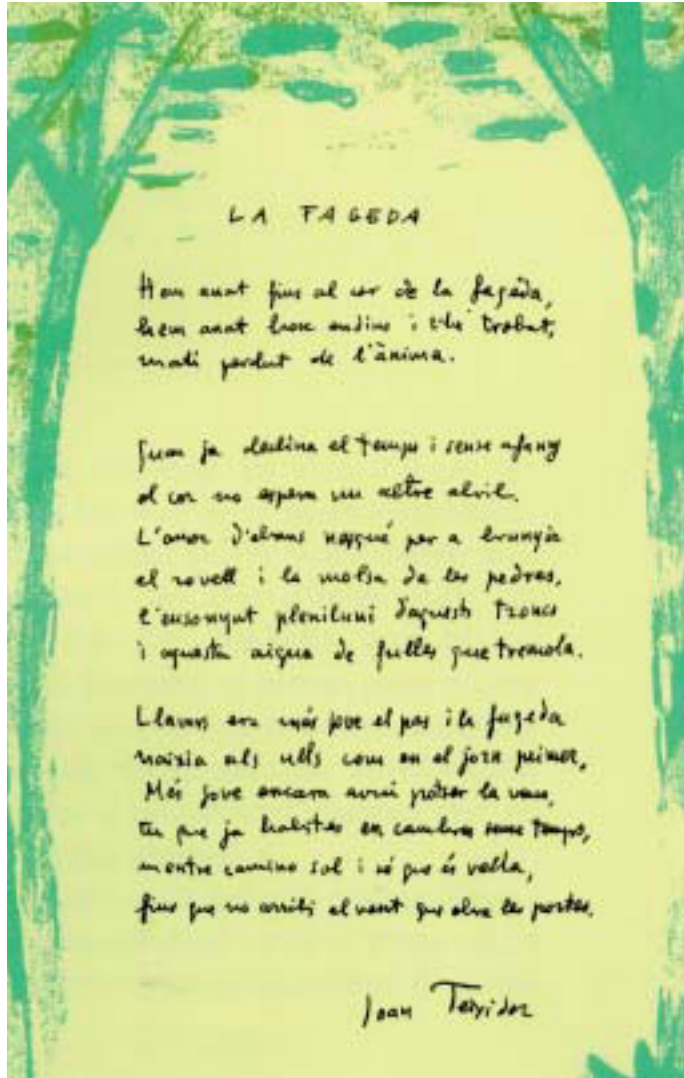 LA FAGEDA
Hem anat fins al cor de la fageda,
hem anat bosc endins i t'he trobat,
matí perdut de l'ànima.
Quan ja declina el temps i sense afany
el cor no espera un altre abril.
L'amor d'abans nasqué per a brunyir
el rovell i la molsa de les pedres,
l'ensonyat pleniluni d'aquests troncs
i aquesta aigua de fulles que tremola.
Llavors era més jove el pas i la fageda
naixia als ulls com en el jorn primer,
Més jove encara avui potser la veus,
tu que ja habites en cambres sense temps,
mentre camino sol i sé que és vella,
fins que no arribi el vent que obre les portes.
Joan Teixidor